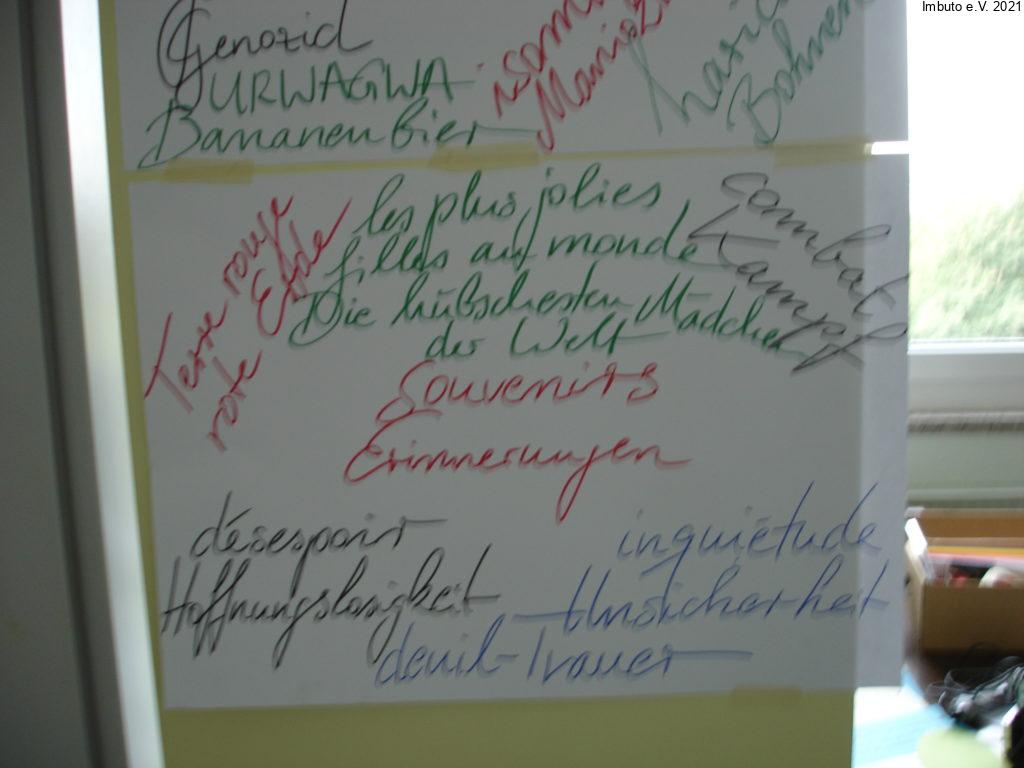 Imbuto e.V. 2021
Genozid
URWAGWA
Bananenbier
Maniok
Bohnen
les plus jolies
filles au monde
Die hübschesten Mädchen
der Welt
Terre rouge
rote Erde
combat
Kampf
Souvenirs
Erinnerungen
désespoir
Hoffnungslosigkeit
inquiétude
Unsicherheit
deuil - Trauer